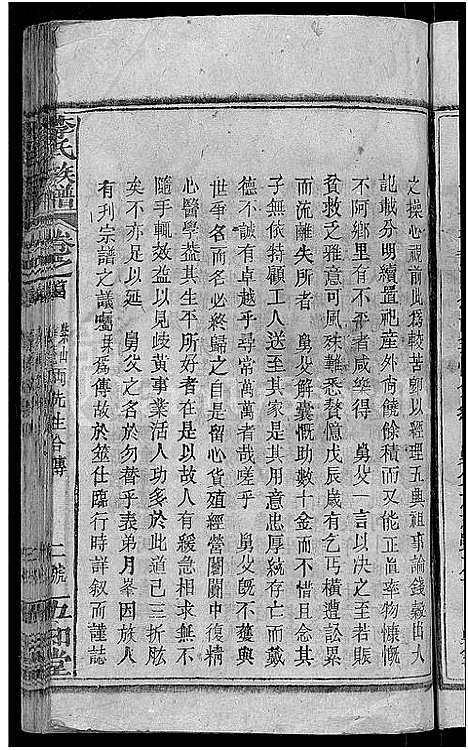 之操心視前此為較苦卽以經理五典祖事論錢穀出入
記載分明續置祀產外尚饒餘積而又能正直率物慷慨
不阿鄉里有不平者咸樂得　舅父一言以決之至若賑
貧救乏雅意可風殊難悉贅憶戊辰歲有乞丐橫遭訟累
而流離失所者　舅父解囊慨助數十金而不惜且念其
子無依特顧工人送至其家是其用意忠厚統存亡而戴
德不誠有卓越乎尋常萬萬者哉嗟乎　舅父旣不獲與
世爭名而名必終歸之自是留心貨殖經營闤闠中復精
心醫學蓋其生平所好者在是以故人有緩急相與就之
隨手輒效益以見岐黃事業活人功多於此道已三折肱
矣不亦足以延　舅父之名於勿替乎義弟月峯因族人
有刊宗譜之議囑　為傳故於筮仕臨行時詳叙而謹誌
李氏族譜
卷之
兩先生合傳
二號
五和堂